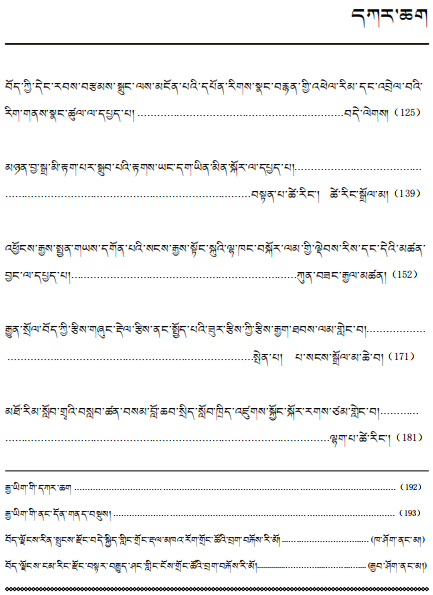 དཀར་ཆག
བོད་ཀྱི་དེང་རབས་བརྩམས་སྒྲུང་ལས་མངོན་པའི་དཔོན་རིགས་སྣང་བརྙན་གྱི་འཕེལ་རིམ་དང་འབྲེལ་བའི་
རིག་གནས་སྣང་ཚུལ་ལ་དཔྱད་པ། ……………………………………………………བདེ་ལེགས། (125)
མཉན་བྱ་སྒྲ་མི་རྟག་པར་སྒྲུབ་པའི་རྟགས་ཡང་དག་ཡིན་མིན་སྐོར་ལ་དཔྱད་པ།………………………………
……………………………………………………………བསྟན་པ་ཚེ་རིང་། ཚེ་རིང་སྒྲོལ་མ། (139)
འཕྱོངས་རྒྱས་སྤྱན་གཡས་དགོན་པའི་སངས་རྒྱས་སྟོང་སྐུའི་ལྷ་ཁང་བསྐོར་ལམ་གྱི་ལྡེབས་རིས་དང་དེའི་མཚན་
བྱང་ལ་དཔྱད་པ།…………………………………………………………ཀུན་བཟང་རྒྱལ་མཚན། (152)
རྒྱུན་སྲོལ་བོད་ཀྱི་རྩིས་གཞུང་རྡེལ་རྩིས་ནང་སྤྱོད་པའི་ཟུར་རྩིས་ཀྱི་རྩིས་རྒྱག་ཐབས་ལམ་གླེང་བ།………………
………………………………………………………………སྤེན་པ། པ་སངས་སྒྲོལ་མ་ཆེ་བ། (171)
མཐོ་རིམ་སློབ་གྲྭའི་བསླབ་ཚན་བསམ་བློ་ཆབ་སྲིད་སློབ་ཁྲིད་འཛུགས་སྐྱོང་སྐོར་རགས་ཙམ་གླེང་བ།…………
…………………………………………………………………………………ལྷག་པ་ཚེ་རིང་། (181)
རྒྱ་ཡིག་གི་དཀར་ཆག ……………………………………………………………………………… (192)
རྒྱ་ཡིག་གི་ནང་དོན་གནད་བསྡུས། …………………………………………………………………… (193)
བོད་ལྗོངས་རིན་སྤུངས་རྫོང་བདེ་སྐྱིད་གླིང་གྲོང་རྡལ་མཁའ་རོག་གྲོང་ཚོའི་བྲག་བརྐོས་རི་མོ། …………………… (ཁ་ཤོག་ནང་མ།)
བོད་ལྗོངས་ངམ་རིང་རྫོང་བསྟར་བརྒྱུད་ཤང་གླིང་ངོས་གྲོང་ཚོའི་བྲག་བརྐོས་རི་མོ།………………………… (རྒྱབ་ཤོག་ནང་མ།)